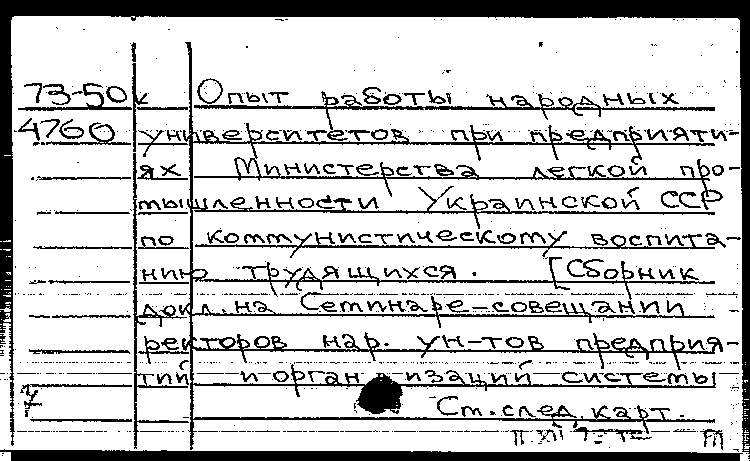 73-50к Опыт работы народных
4760 университетов при предприяти-
ях Министерства легкой про-
мышленности Украинской ССР
по коммунистическому воспита-
нию трудящихся. [Сборник
докл. на Семинаре-совещании
ректоров нар. ун-тов предприя-
тий и организаций системы
См. след. карт.